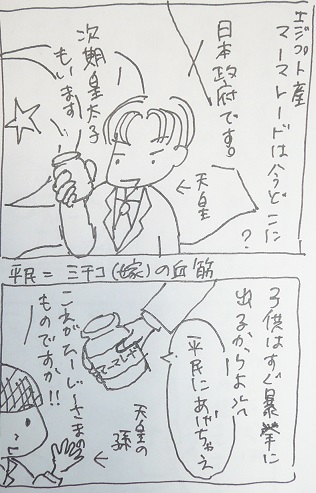 エジプト産
マーマレードは今どこに
?
日本政府です。
次期皇太子
もいます
←天皇
平民=ミチコ(嫁)の血筋
子供はすぐ暴挙に
出るから
平民にあげちゃえ
マーマレード
これが
ものですか!!
天皇の
孫
←